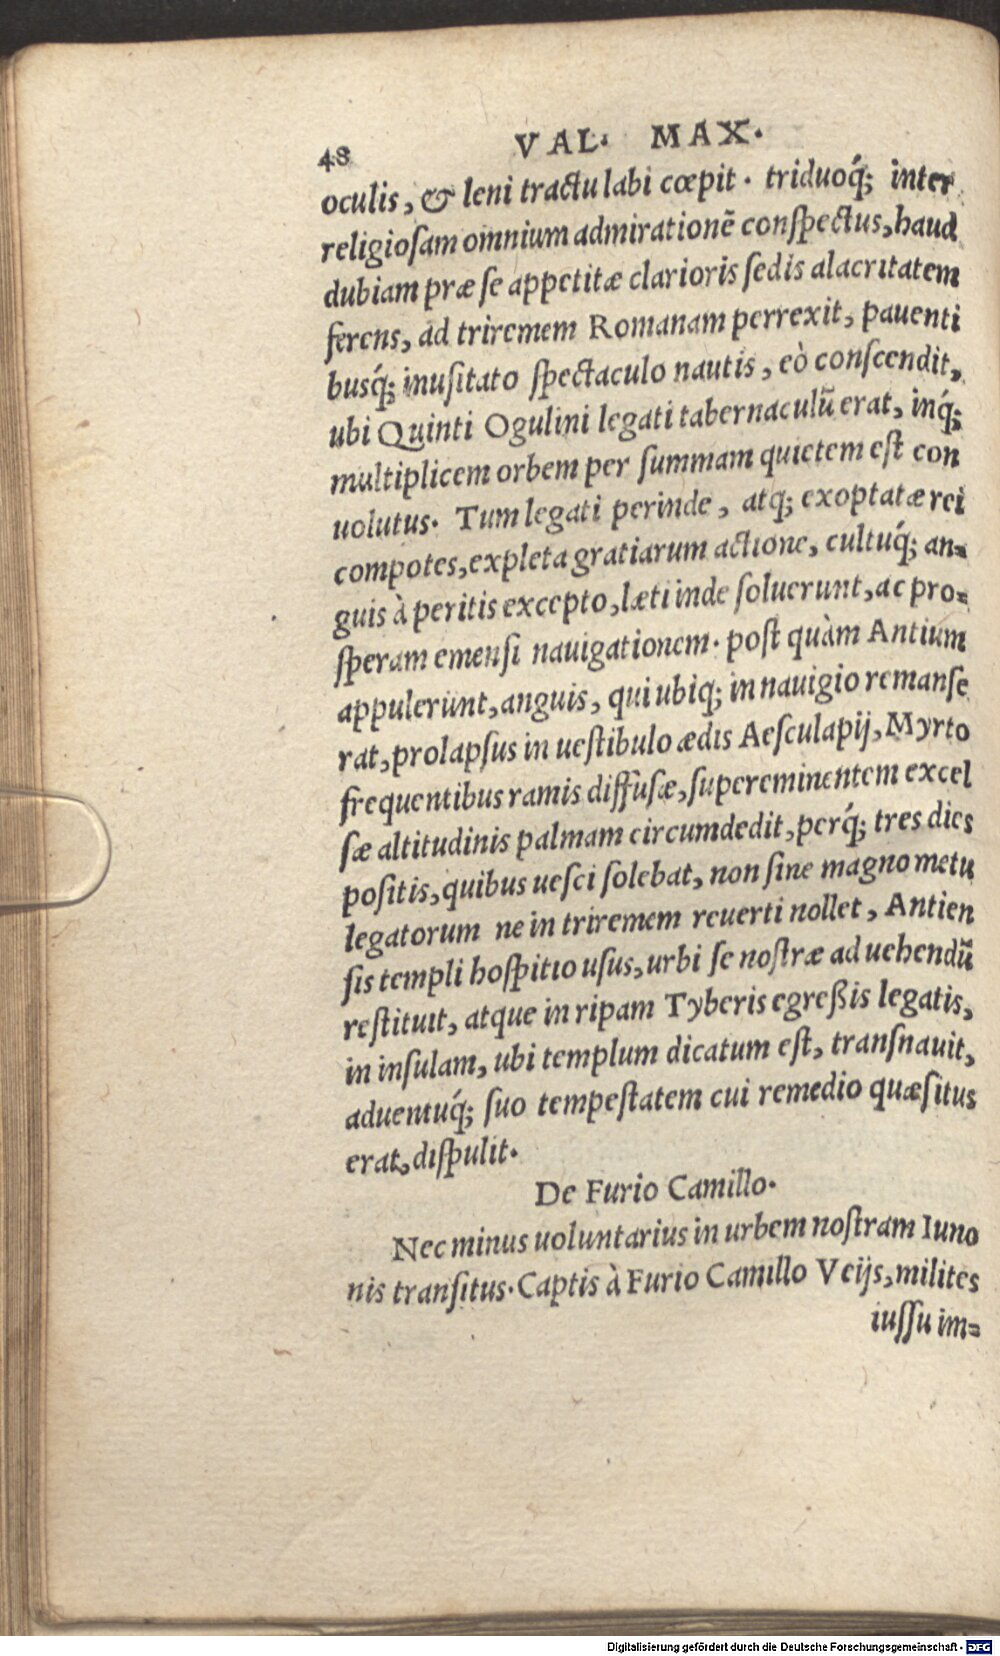 48 VAL. MAX.
oculis, & leni tractu labi cœpit. triduoq́; inter
religiosam omnium admirationē conspectus, haud
dubiam præ se appetitæ clarioris sedis alacritatem
ferens, ad triremem Romanam perrexit, pauenti
busq́; inusitato spectaculo nautis, eò conscendit,
ubi Quinti Ogulini legati tabernaculũ erat, inq́;
multiplicem orbem per summam quietem est con
uolutus. Tum legati perinde, atq; exoptatæ rei
compotes, expleta gratiarum actione, cultuq́; an-
guis à peritis excepto, læti inde soluerunt, ac pro-
speram emensi nauigationem. post quàm Antium
appulerunt, anguis, qui ubiq; in nauigio remanse
rat, prolapsus in uestibulo ædis Aesculapij, Myrto
frequentibus ramis diffusæ, supereminentem excel
sæ altitudinis palmam circumdedit, perq́; tres dies
positis, quibus uesci solebat, non sine magno metu
legatorum ne in triremem reuerti nollet, Antien
sis templi hospitio usus, urbi se nostræ aduehendũ
restituit, atque in ripam Tyberis egreßis legatis,
in insulam, ubi templum dicatum est, transnauit,
aduentuq́; suo tempestatem cui remedio quæsitus
erat, dispulit.
De Furio Camillo.
Nec minus uoluntarius in urbem nostram Iuno
nis transitus. Captis à Furio Camillo Veijs, milites
iussu im-
Digitalisierung gefördert durch die Deutsche Forschungsgemeinschaft - DFG